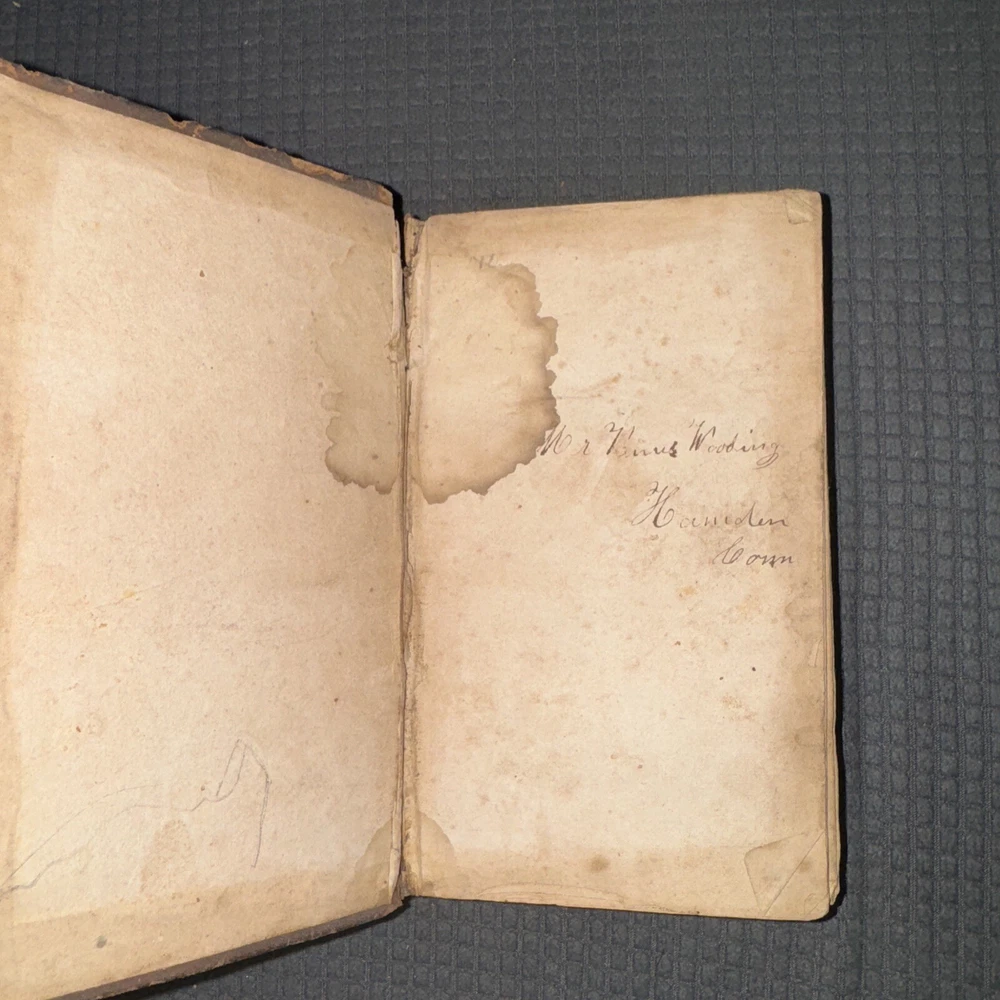 Mr Wooding
Hamden
Conn